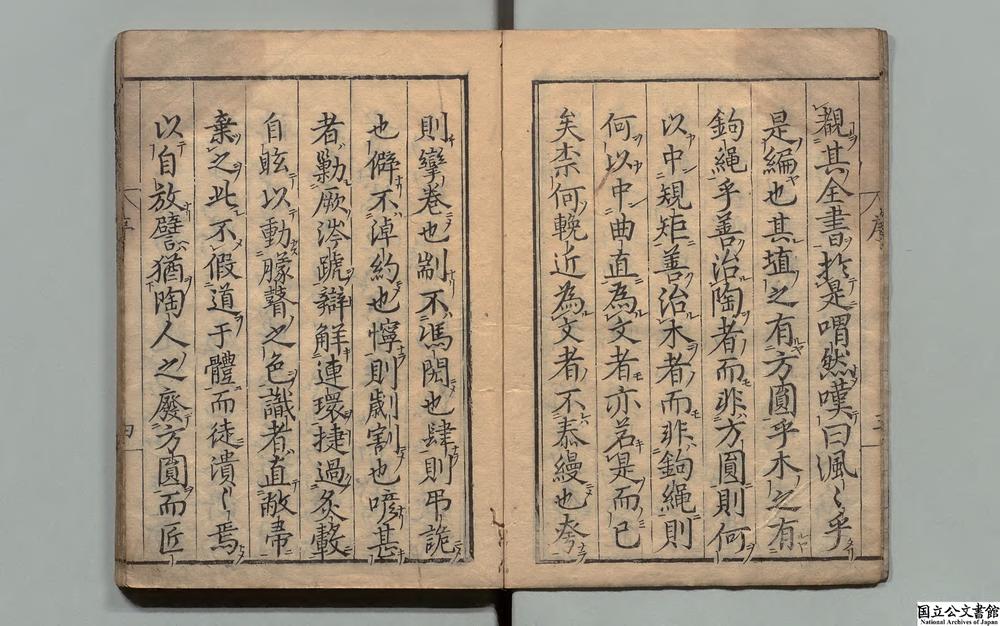 覩其全書於是喟然嘆曰渢〻乎
是編也其埴之有方圓乎木之有
鉤繩乎善治陶者而非方圓則何
以中規矩善治木者而非鉤繩則
何以中曲直為文者亦若是而已
矣柰何輓近為文者不泰縵也夸
則臠卷也耑不馮閎也肆則弔詭
也僻不淖約也懧則劌割也喭甚
者勦厥涔蹏辯解連環捷過炙轂
自眩以動朦瞽之色識者直敝帚
棄之此不假道于體而徒潰〻焉
以自放譬猶陶人之廢方圓而匠
序
三
序
四
国立公文書館
National Archives of Japan